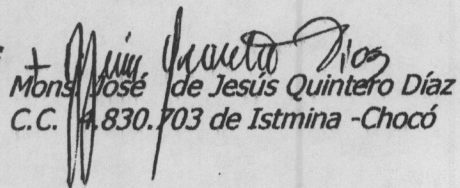 Mons. José de Jesús Quintero Díaz
C.C. 4.830.703 de Istmina -Chocó